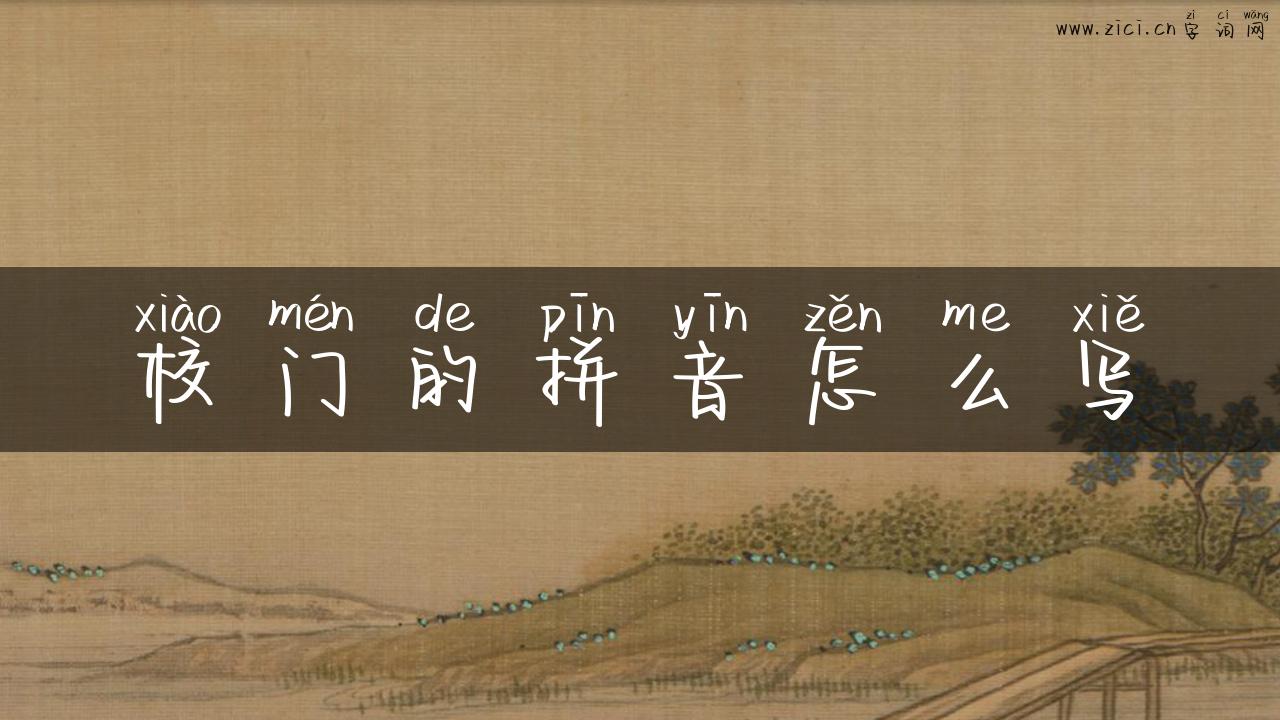 zì cí wǎng
www.zici.cn 字 词 网
xiào mén de pīn yīn zěn me xiě
校 门 的 拼 音 怎 么 写